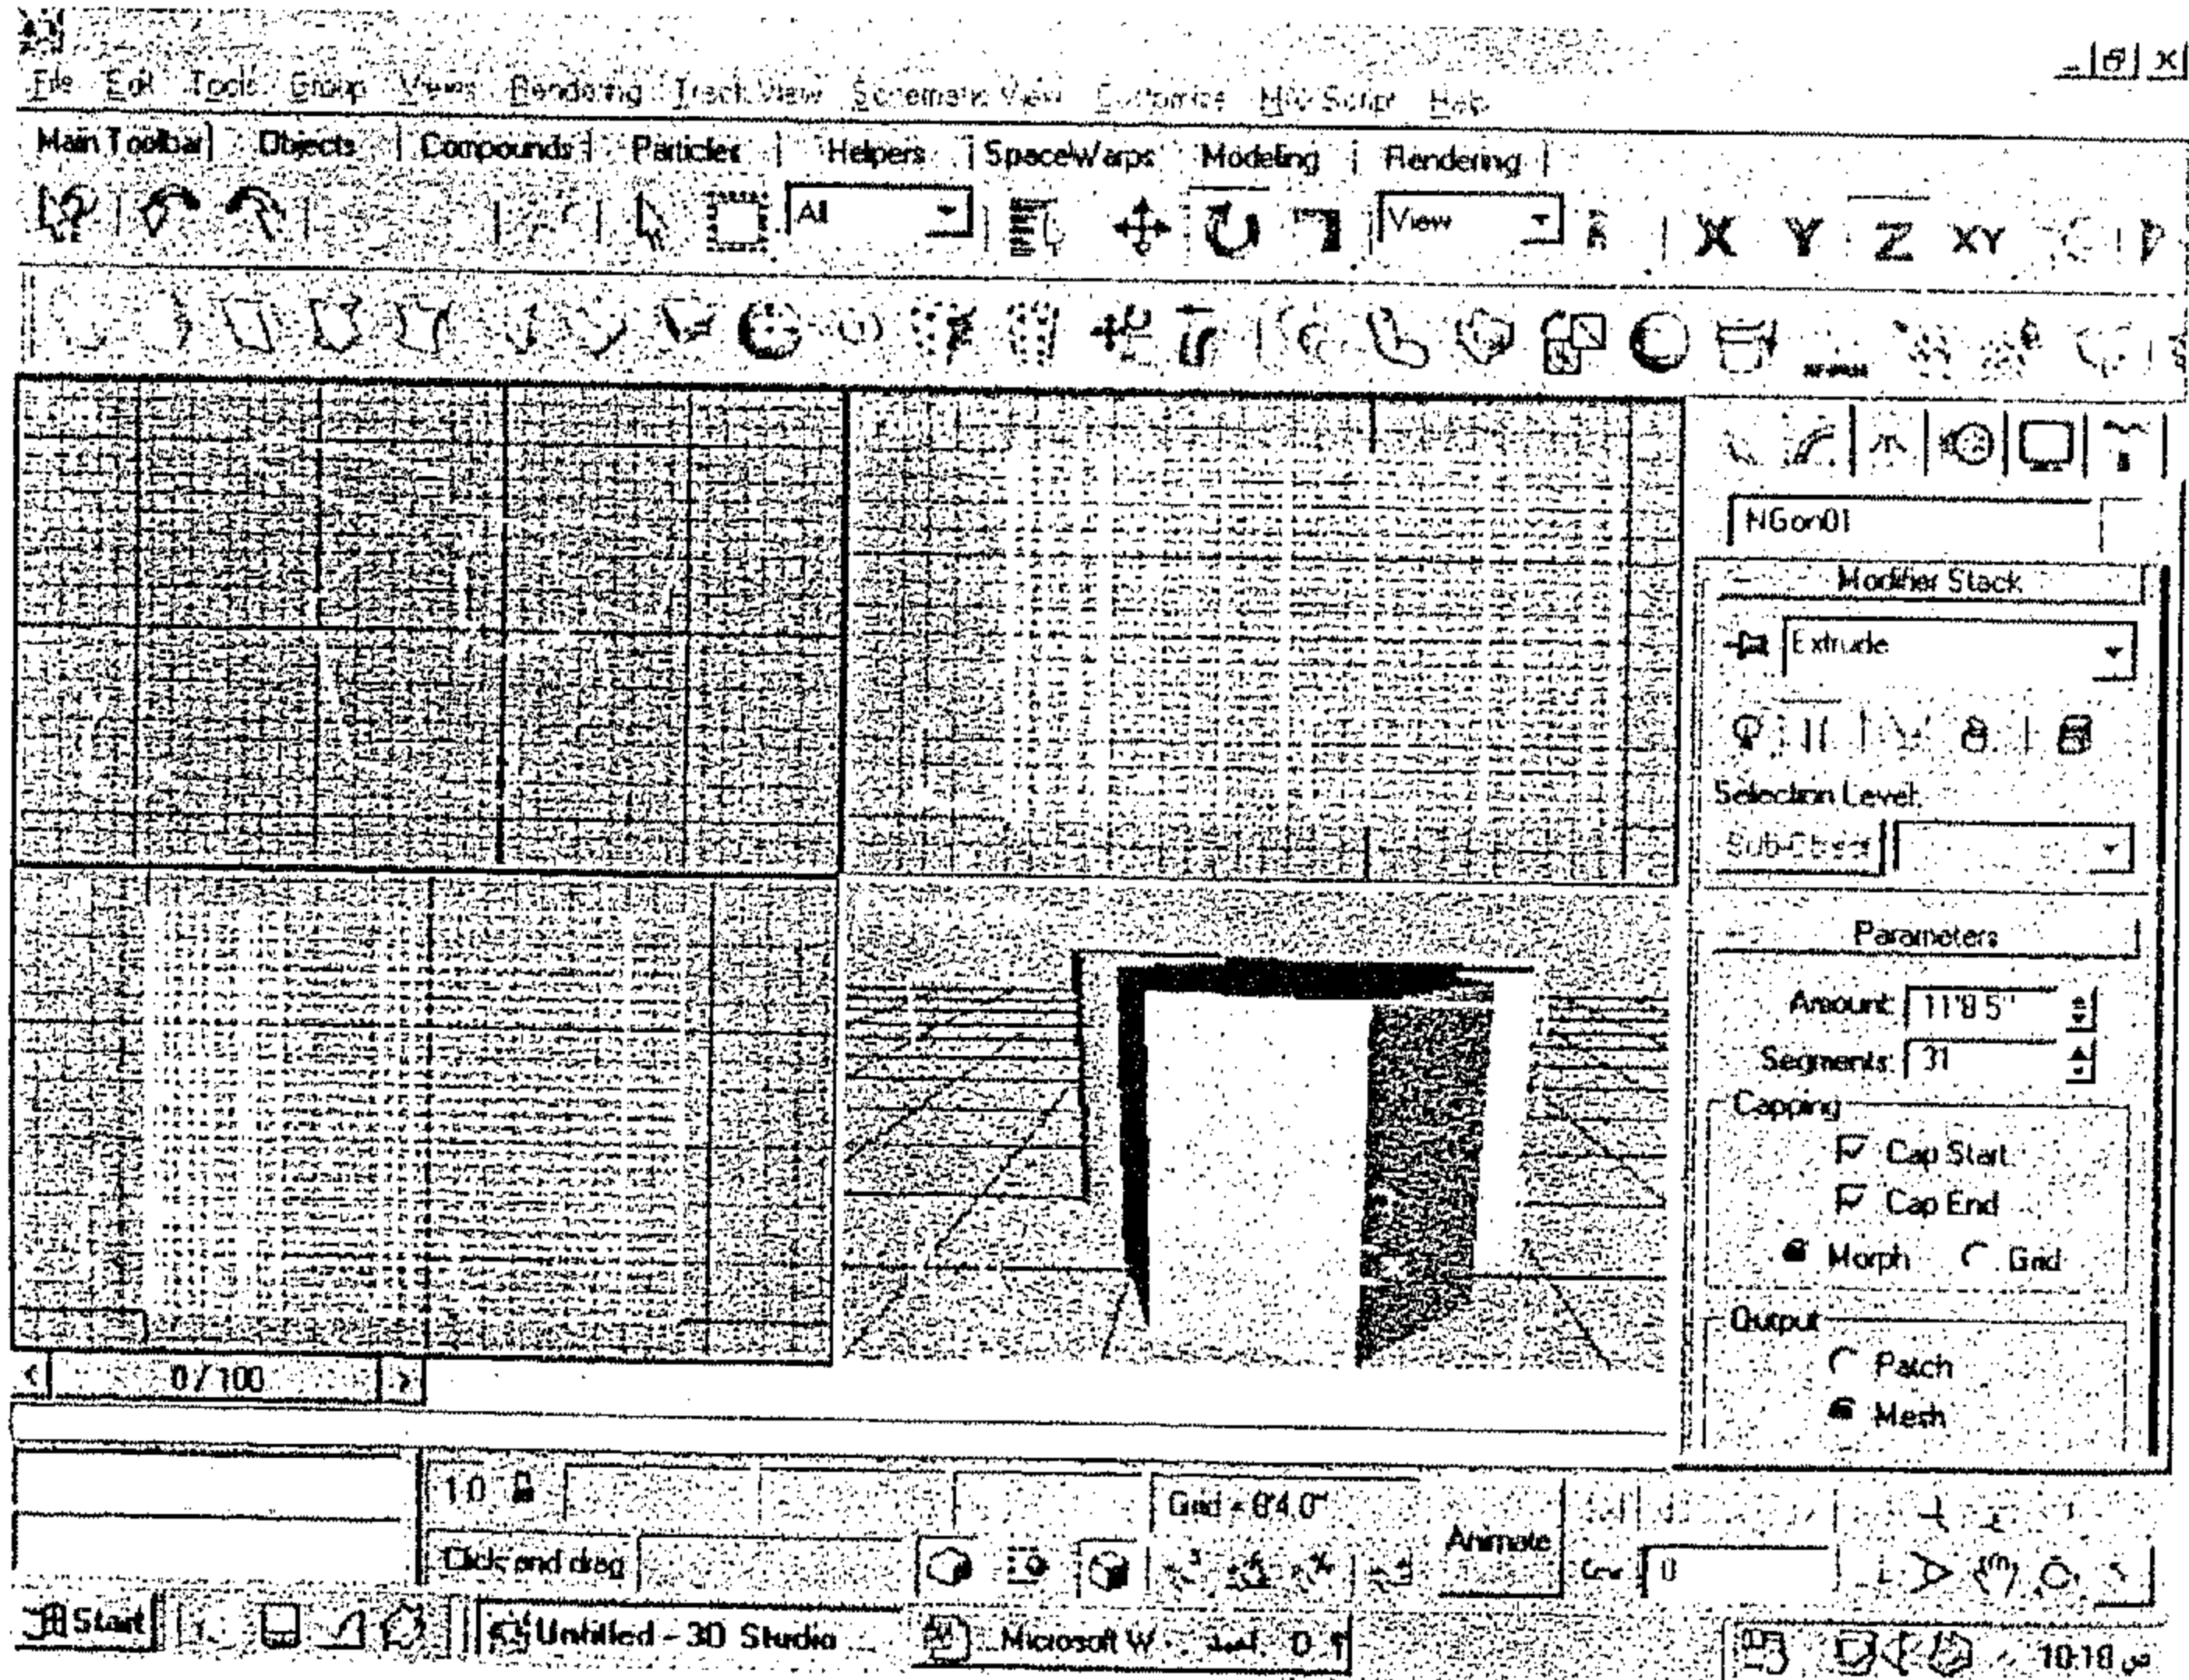 File Edit Tools Group Views Rendering Track View Schematic View Customize MAXScript Help
Main Toolbar Objects Compounds Particles Helpers SpaceWarps Modeling Rendering
All View X Y Z XY
NGon01
Modifier Stack
Extrude
Selection Level:
Sub-Object
Parameters
Amount: 11'8.5"
Segments: 31
Capping
Cap Start
Cap End
Morph Grid
Output
Patch
Mesh
0 / 100
1:0 Grid =
Click and drag Animate 0
Start Untitled - 3D Studio ... Microsoft W
10:18 ص